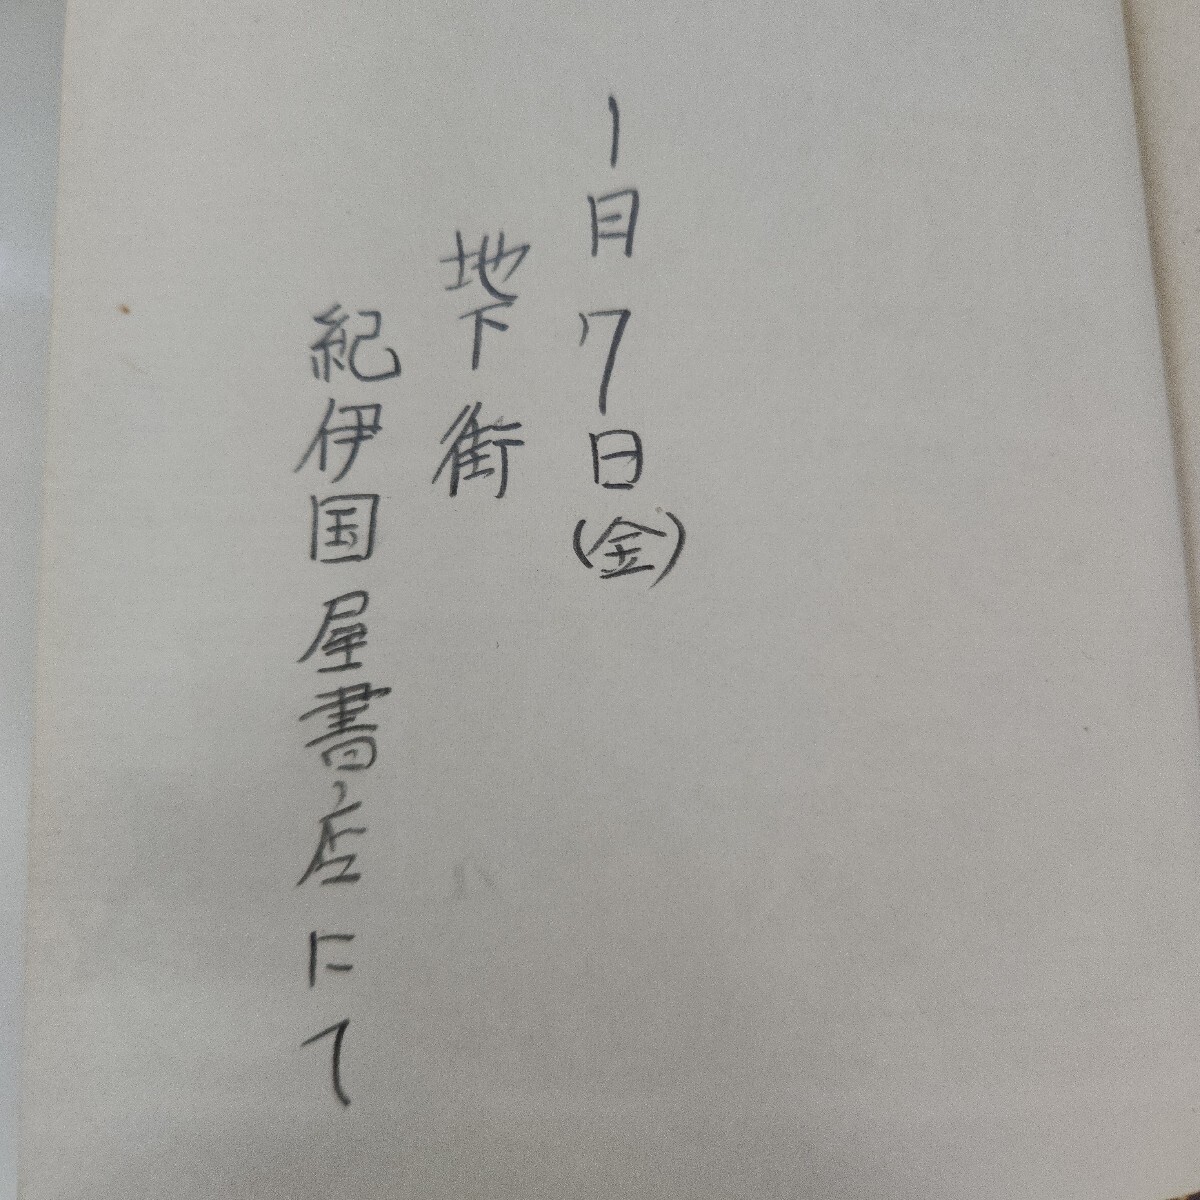 1月7日(金)
地下街
紀伊国屋書店にて